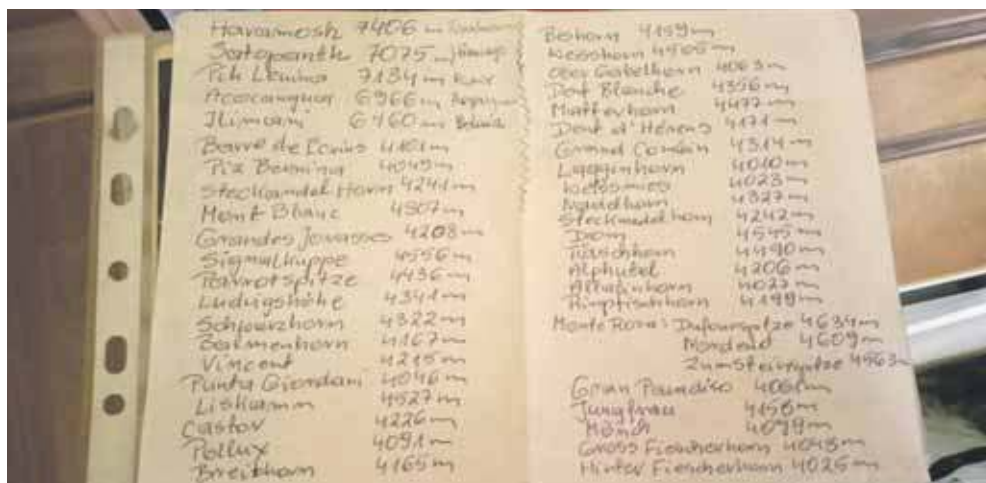 Haramosh 7406 m
Satopanth 7075 m
Pik Lenina 7134 m
Acocangua 6966 m
Ilimani 6460 m Bolivia
Barre de Ecrins 4101 m
Piz Bernina 4049 m
Stecknadel Horn 4241 m
Mont Blanc 4807 m
Grandes Jorasses 4208 m
Signalkuppe 4556 m
Parrotspitze 4436 m
Ludwigshöhe 4341 m
Schwarzhorn 4322 m
Balmenhorn 4167 m
Vincent 4215 m
Punta Giordani 4046 m
Liskamm 4527 m
Castor 4226 m
Pollux 4091 m
Breithorn 4165 m
Bishorn 4159 m
Weisshorn 4505 m
Ober Gabelhorn 4063 m
Dent Blanche 4356 m
Matterhorn 4477 m
Dent d'Hérens 4171 m
Grand Combin 4314 m
Laggenhorn 4010 m
Weissmies 4023 m
Nadelhorn 4327 m
Stecknadelhorn 4242 m
Dom 4545 m
Täschhorn 4490 m
Alphubel 4206 m
Allalinhorn 4027 m
Rimpfischhorn 4199 m
Monte Rosa: Dufourspitze 4634 m
Nordend 4609 m
Zumsteinspitze 4563 m
Gran Paradiso 4061 m
Jungfrau 4158 m
Mönch 4099 m
Gross Fiescherhorn 4048 m
Hinter Fiescherhorn 4025 m